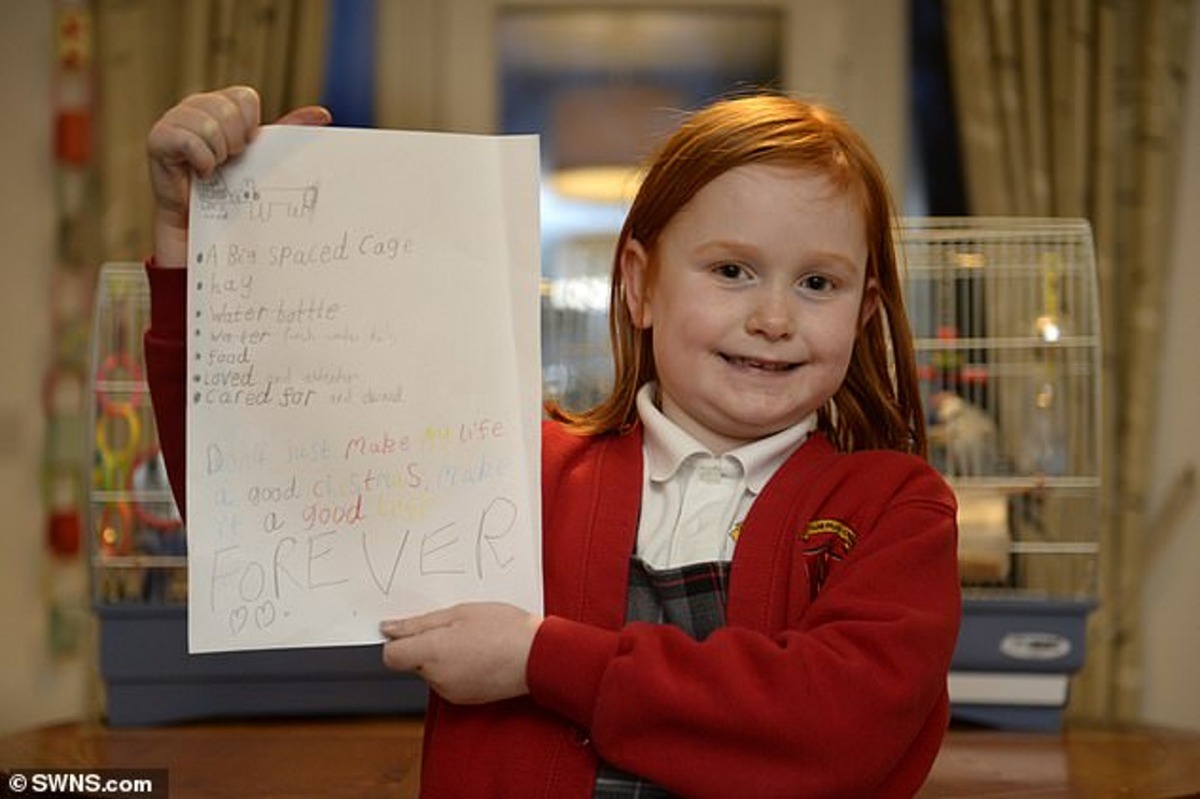 • A Big spaced Cage
• hay
• Water bottle
• Water fresh water daily
• food
• Loved and
• cared for and
Don't just make my life
a good christmas, make
it a good
FOREVER
© SWNS.com